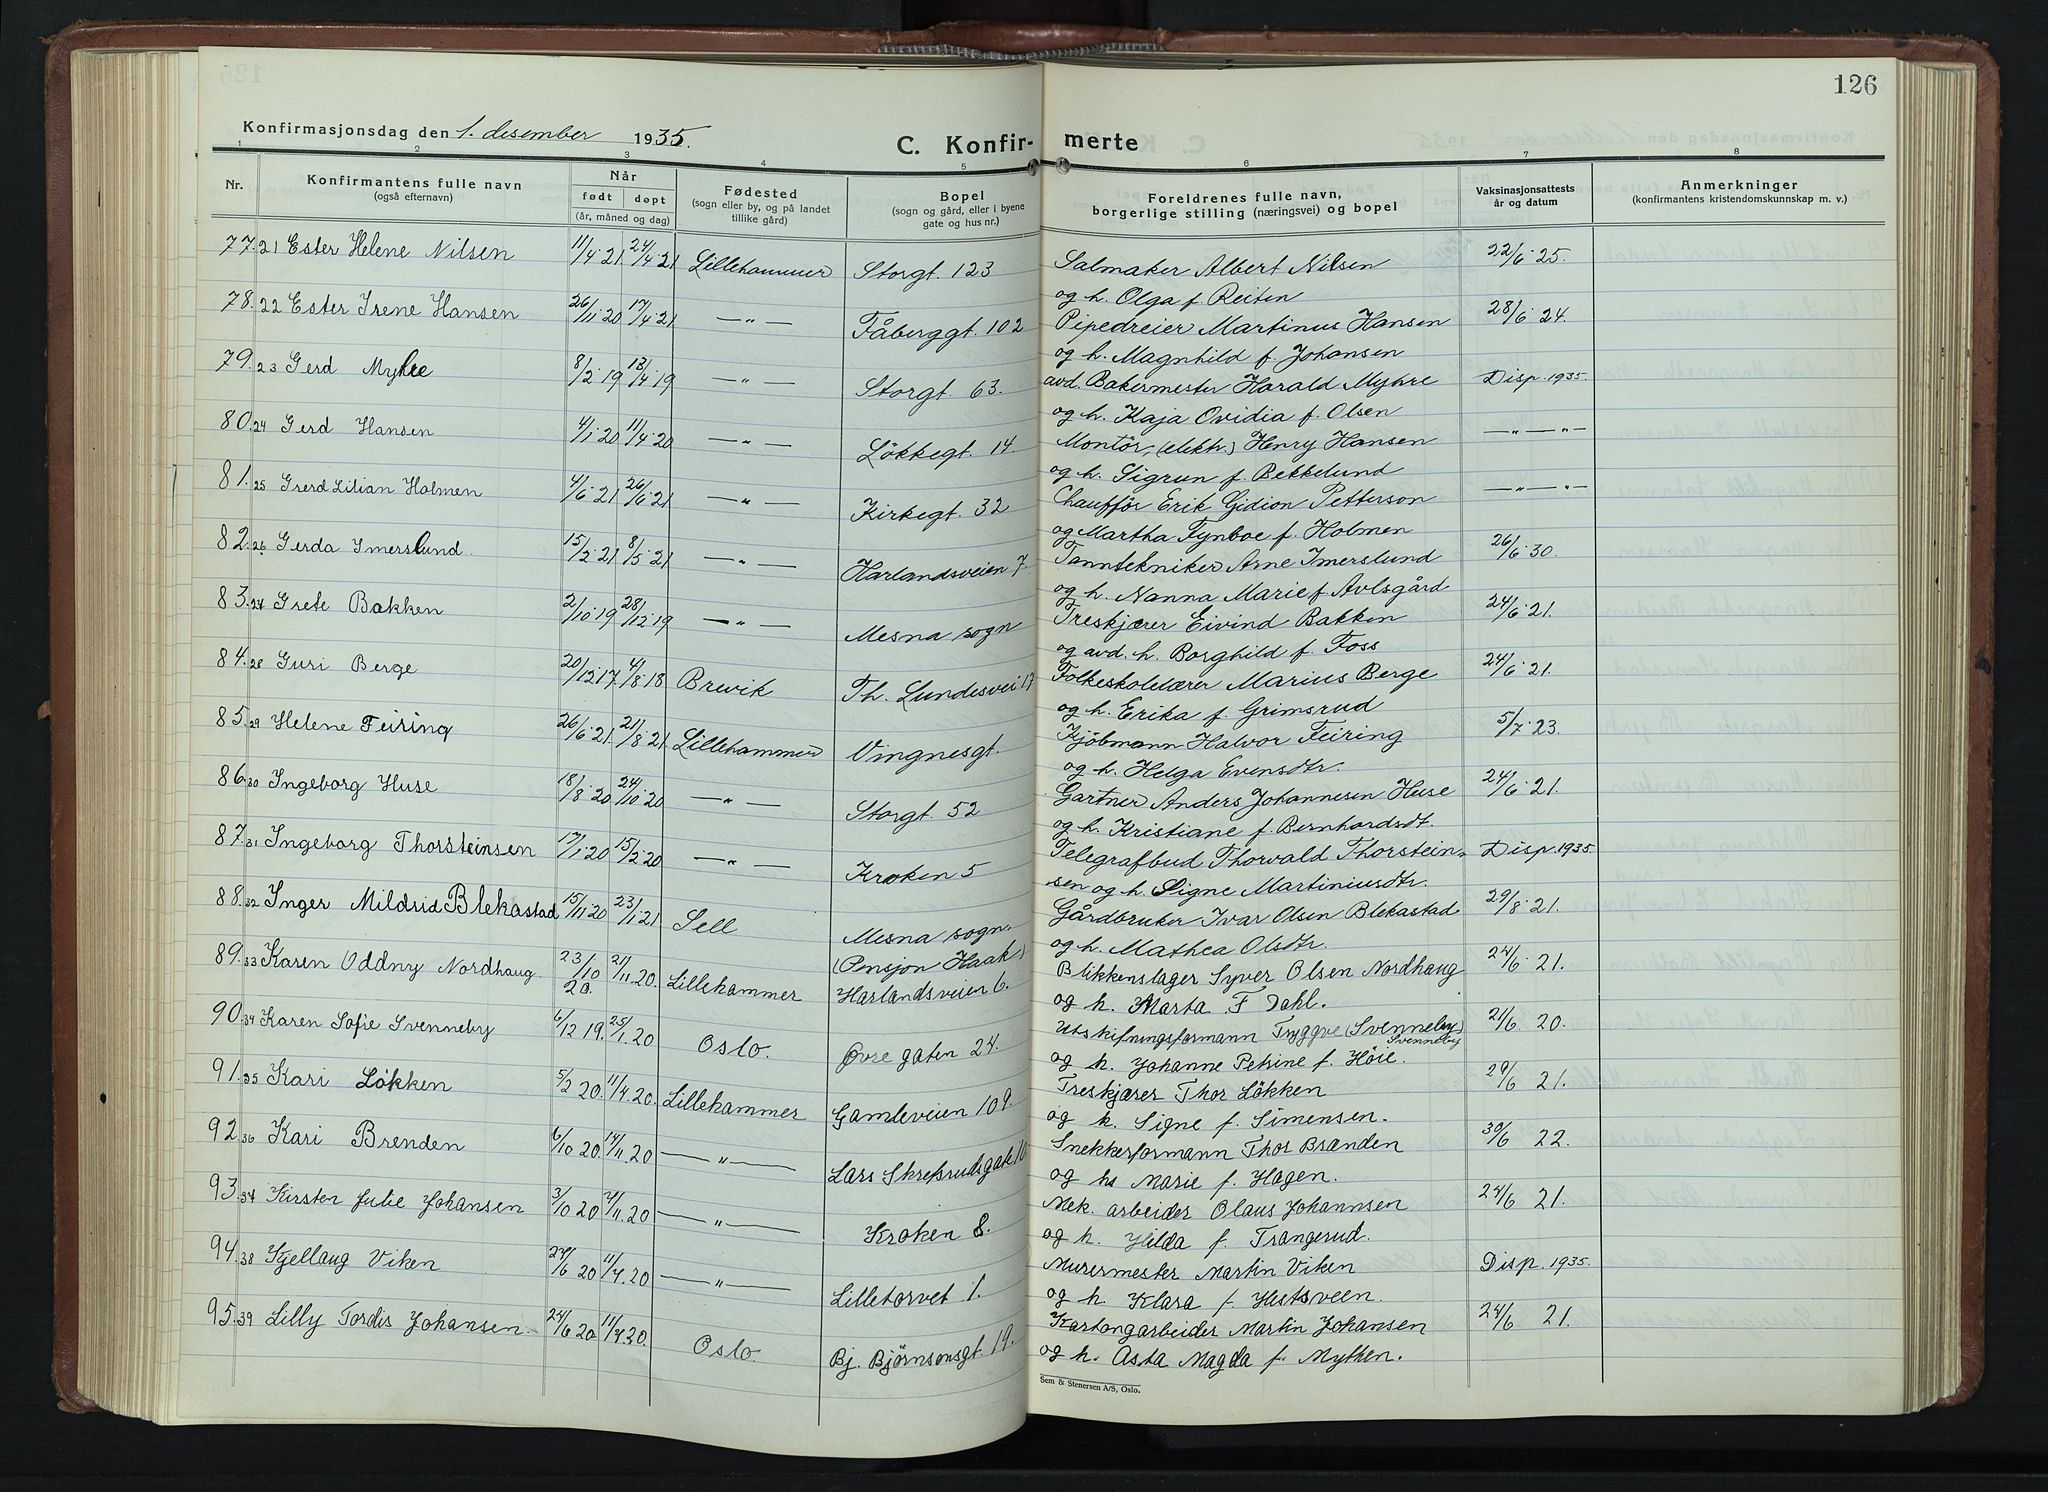 126
Konfirmasjonsdag den 1. desember 1935.
C. Konfir- merte
1 2 3 4 5 6 7 8
Nr.
Konfirmantens fulle navn
(også efternavn)
Når
født døpt
(år, måned og dag)
Fødested
(sogn eller by, og på landet
tillike gård)
Bopel
(sogn og gård, eller i byene
gate og hus nr.)
Foreldrenes fulle navn,
borgerlige stilling (næringsvei) og bopel
Vaksinasjonsattests
år og datum
Anmerkninger
(konfirmantens kristendomskunnskap m. v.)
77. 21 Ester Helene Nilsen 11/4·21 24/4·21 Lillehammer Storgt. 123 Salmaker Albert Nilsen 22/6·25.
og h. Olga f. Reiten
78. 22 Ester Irene Hansen 26/11·20 17/4·21 —"— Fåberggt. 102 Pipedreier Martinus Hansen 28/6·24.
og h. Magnhild f. Johansen
79. 23 Gerd Myhre 8/2·19 13/4·19 —"— Storgt. 63. avd. Bakermester Harald Myhre Disp. 1935.
og h. Kaja Ovidia f. Olsen
80. 24 Gerd Hansen 4/1·20 11/4·20 —"— Løkkegt. 14. Montør, (elektr.) Henry Hansen —"— "—
og h. Sigrun f. Bekkelund
81. 25 Gerd Lilian Holmen 4/6·21 26/6·21 —"— Kirkegt. 32 Chauffør Erik Gidion Petterson —"— "—
og Martha Fynboe f. Holmen
82. 26 Gerda Imerslund. 15/2·21 8/5·21 —"— Harlandsveien 7. Tanntekniker Arne Imerslund 26/6·30.
og h. Nanna Marie f. Avlsgård
83. 27 Grete Bakken 2/10·19 28/12·19 —"— Mesna sogn Treskjærer Eivind Bakken 24/6·21.
og avd. h. Borghild f. Foss
84. 28 Guri Berge 20/12·17. 4/8·18 Brevik Th. Lundesvei 17 Folkeskolelærer Marius Berge 24/6·21.
og h. Erika f. Grimsrud
85. 29 Helene Feiring 26/6·21. 21/8·21 Lillehammer Vingnesgt. Kjøbmann Halvor Feiring 5/7·23.
og h. Helga Evensdtr.
86. 30 Ingeborg Huse 18/8·20 24/10·20 —"— Storgt. 52 Gartner Anders Johannesen Huse 24/6·21.
og h. Kristiane f. Bernhardsdt.
87. 31 Ingeborg Thorsteinsen 17/1·20 15/2·20 —"— Kroken 5 Telegrafbud Thorvald Thorstein- Disp. 1935.
sen og h. Signe Martiniusdtr.
88. 32 Inger Mildrid Blekastad 15/11·20 23/1·21 Sell Mesna sogn. Gårdbruker Ivar Olsen Blekastad 29/8·21.
(Pensjon Haak) og h. Mathea Olsdtr.
89. 33 Karen Oddny Nordhaug. 23/10 20. 21/11.20. Lillehammer Harlandsveien 6. Blikkenslager Syver Olsen Nordhaug 24/6·21.
og h. Marta F Dahl.
90. 34 Karen Sofie Svenneby 6/12 19. 25/1.20 Oslo. Øvre gaten 24. Utskifningsformann Tryggve (Svenneby) 21/6 20.
Svenneby
og h. Johanne Petrine f. Høie.
91. 35 Kari Løkken 5/2 20. 11/4.20. Lillehammer Gamleveien 109. Treskjærer Thor Løkken 29/6 21.
og h. Signe f. Simensen.
92. 36 Kari Brenden 6/10 20. 14/11.20 —"— Lars Skrefsrudsgate 10. Snekkerformann Thor Brænden 30/6 22.
og hs Marie f. Hagen.
93. 37 Kirsten Julie Johansen 3/10 20 7/11.20 —"— Kroken 8. Mek. arbeider Olaus Johannsen 24/6 21.
og h. Hilda f. Trangerud.
94. 38 Kjellaug Viken 27/6 20 11/4.20 —"— Lilletorvet 1. Murermester Martin Viken Disp. 1935.
og h Klara f. Hestsveen.
95. 39 Lilly Tordis Johansen. 24/6 20. 11/4.20. Oslo. Bj. Bjørnsonsgt. 19. Kartongarbeider Martin Johansen 24/6 21.
og h. Asta Magda f. Mythen.
Sem & Stenersen A/S, Oslo.